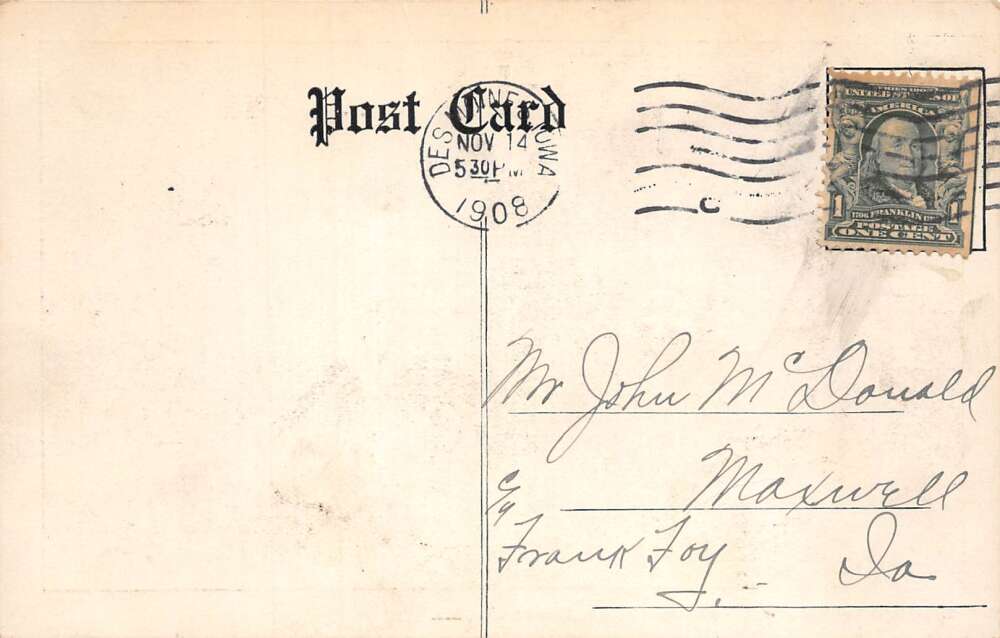 Post Card
DES MOINES, IOWA
NOV 14
5 30 P M
1908
SERIES 1902
UNITED STATES OF
AMERICA
1 1706 FRANKLIN 1
POSTAGE
ONE CENT
Mr John McDonald
Maxwell
c/o
Frank Foy
Ia